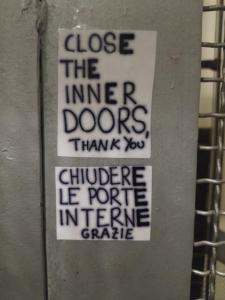 CLOSE
THE
INNER
DOORS,
THANK YOU
CHIUDERE
LE PORTE
INTERNE
GRAZIE